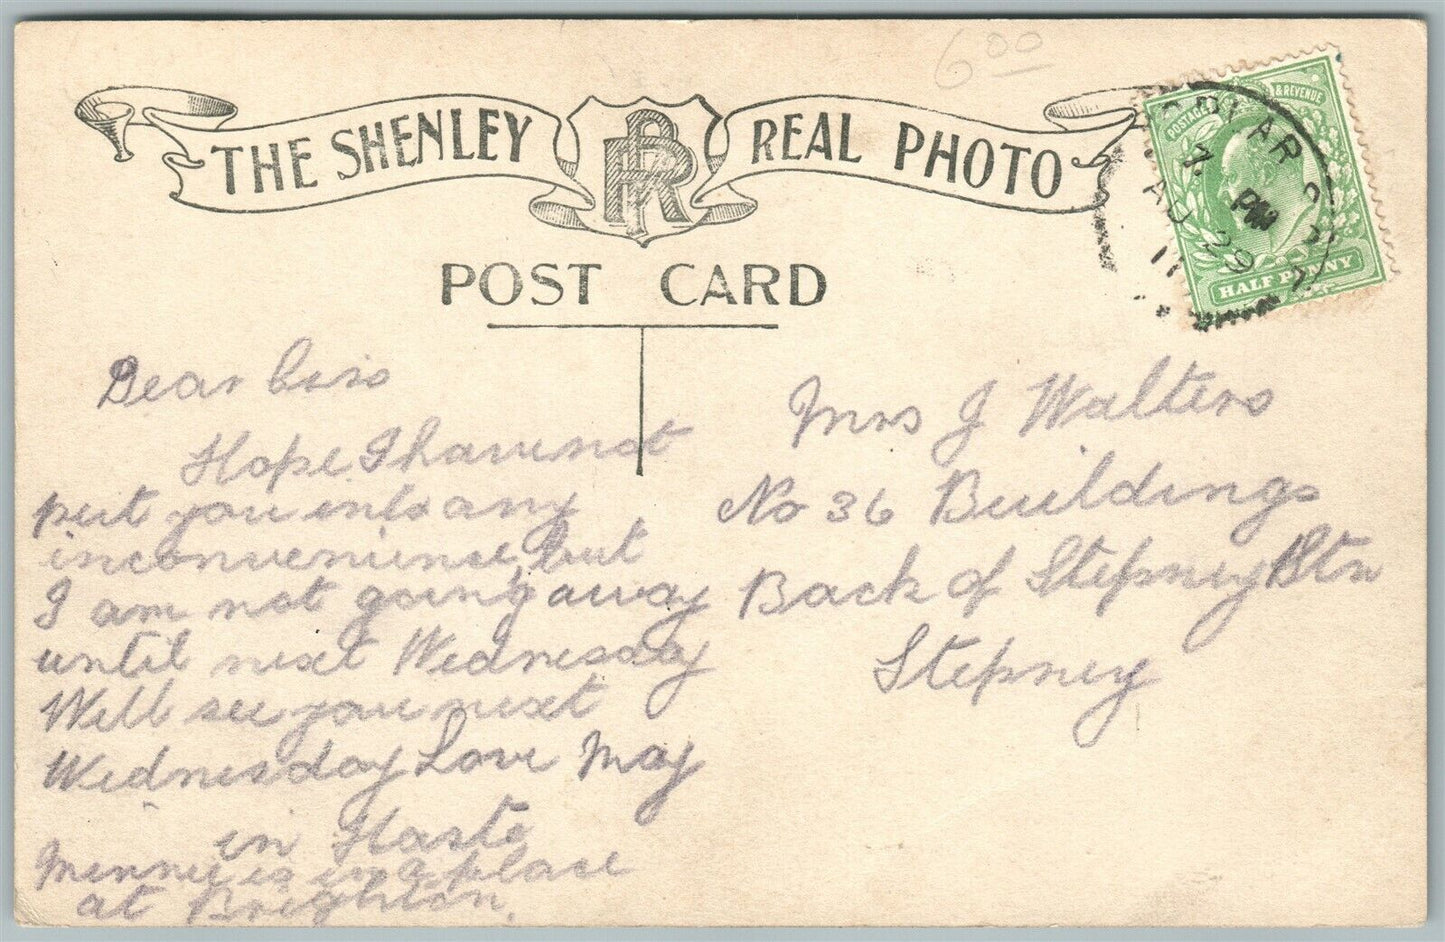 6 00
THE SHENLEY REAL PHOTO
RP
POST CARD
POSTAGE & REVENUE
HALF PENNY
7. PM
AU 29
11
Dear Ciss
Hope I have not
put you into any
inconvenience, but
I am not going away
until next Wednesday
Will see you next
Wednesday Love May
in Haste
Minnie is in a place
at Brighton.
Mrs J Walters
No 36 Buildings
Back of Stepney Stn
Stepney